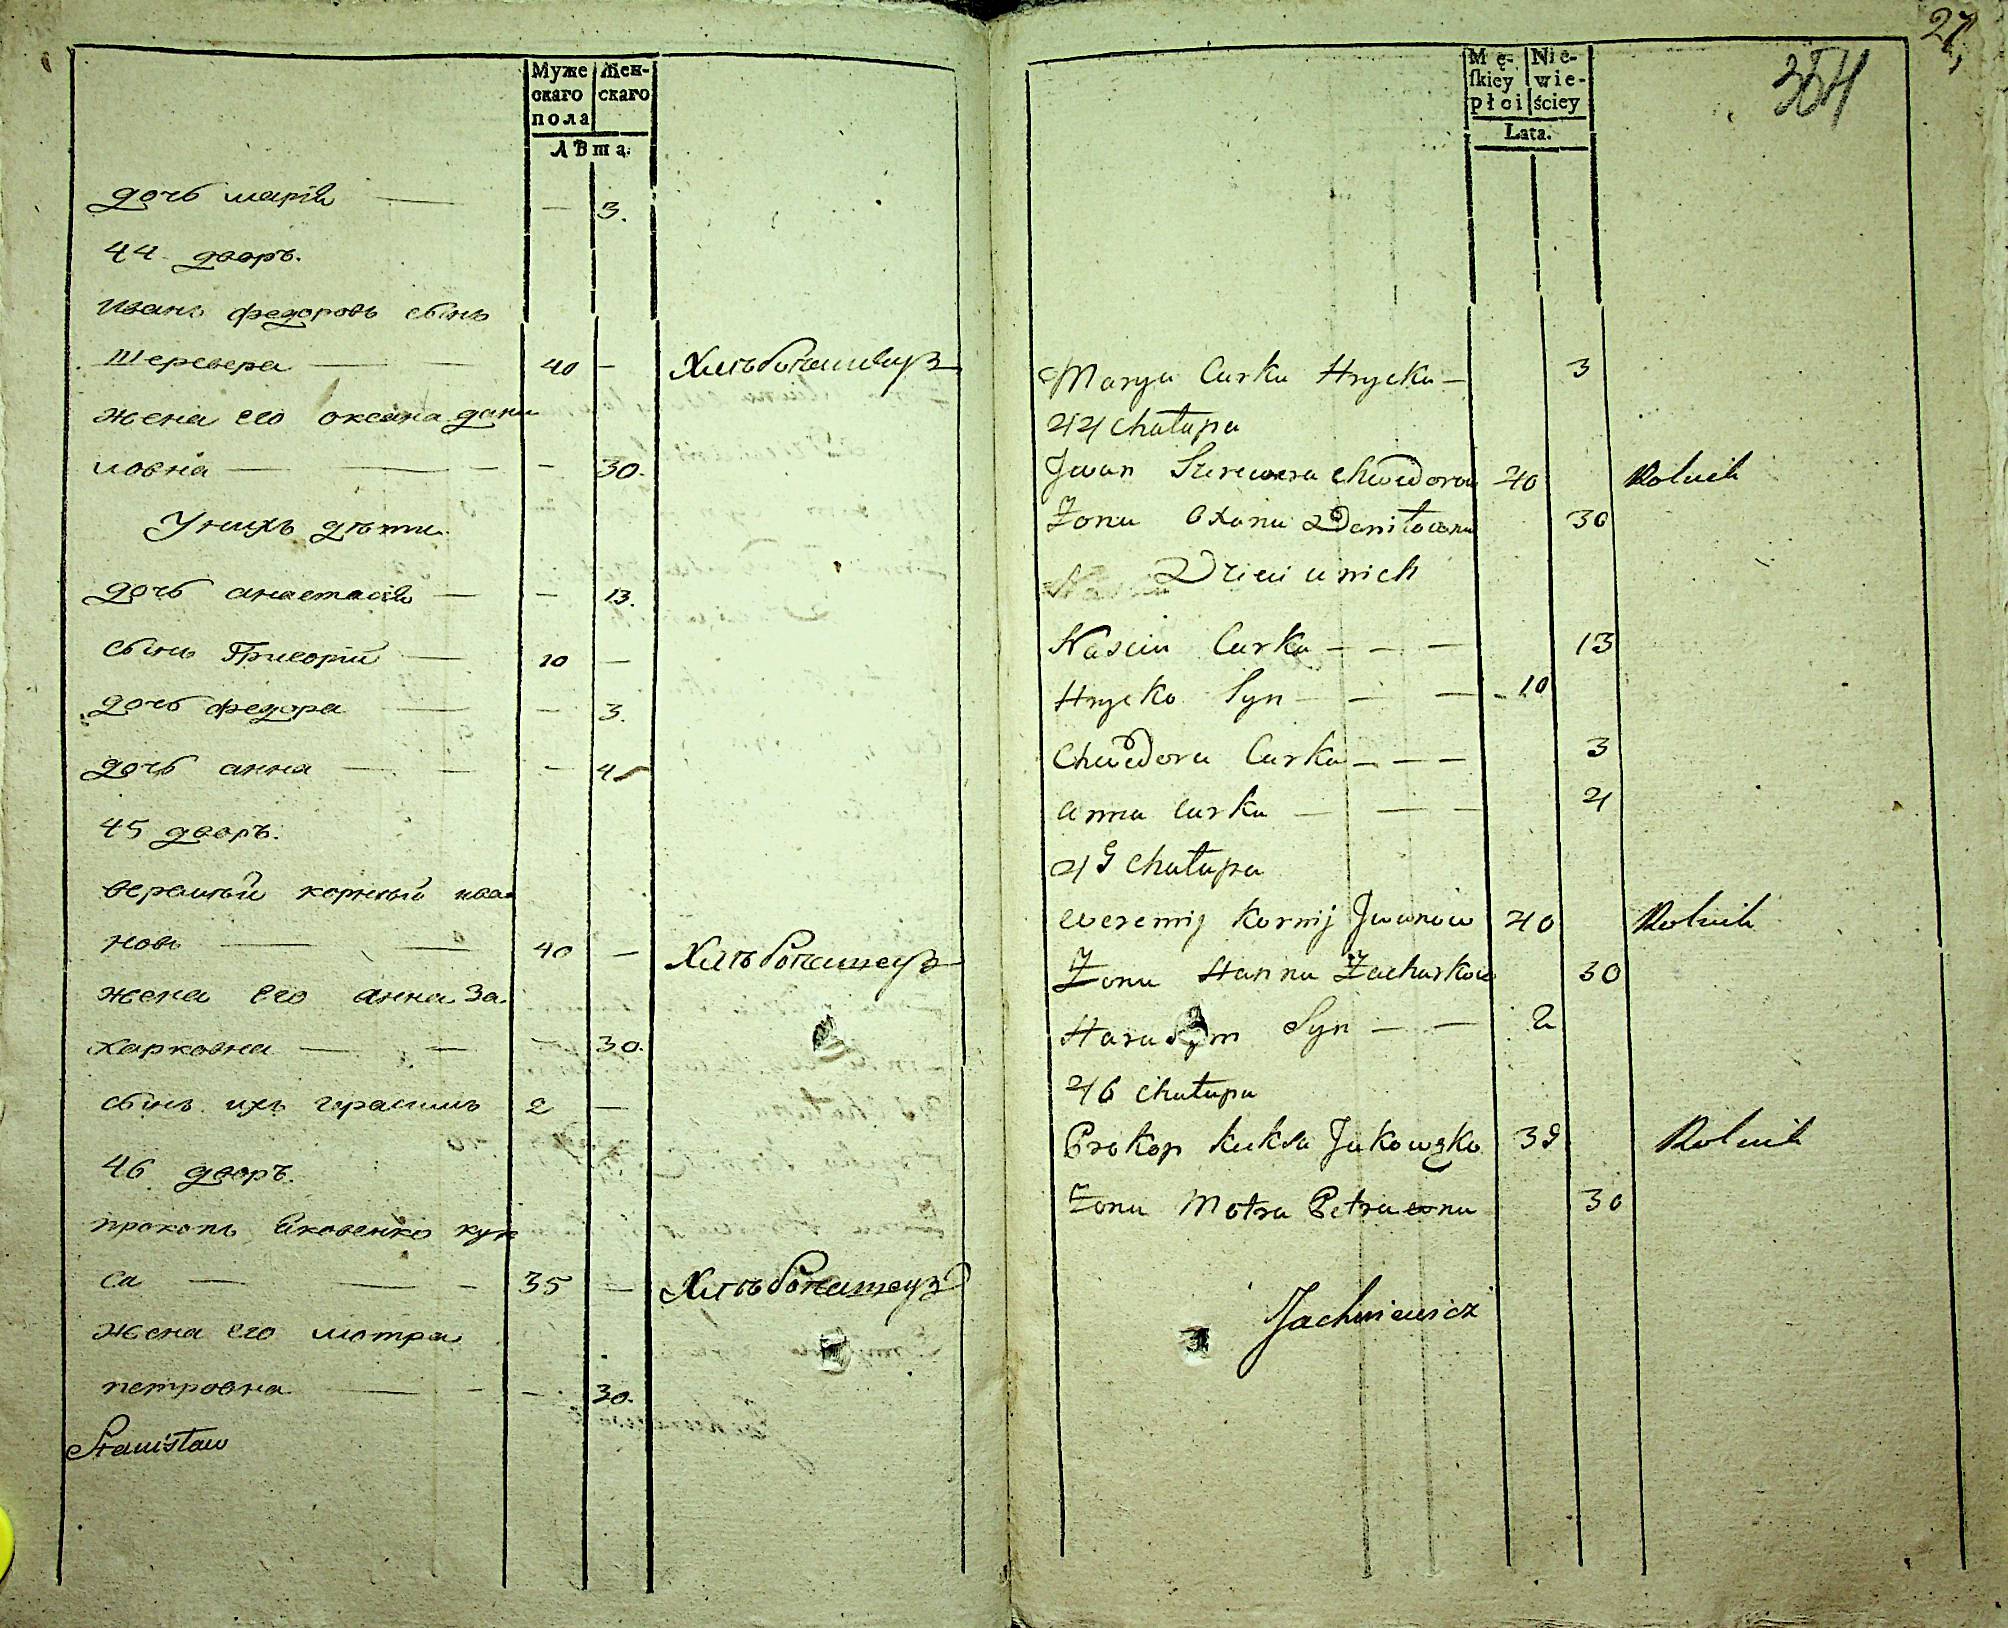 Муже
скаго
пола
Жен-
скаго
лѣта.
дочь марія — — 3.
44 дворъ.
иванъ федоровъ сынъ
Шеревера — — 40 — Хлѣбопашецъ
жена его оксана дани
ловна — — — — 30.
У нихъ дѣти.
дочь анастасія — — 13.
сынъ Григорій — 10 —
дочь федора — — 3.
дочь анна — — — 4
45 дворъ.
веремѣй корнѣй ива
новъ — — 40 — Хлѣбопашецъ
жена его анна За
харковна — — — 30.
сынъ ихъ герасимъ 2 —
46 дворъ.
прокопъ Яковенко кук
са — — — 35 — Хлѣбопашецъ
жена его мотра
петровна — — — 30.
Stanisław
27,
354
Mę-
skiey
płci
Nie-
wie-
ściey
Lata.
Marya Curka Hrycka — 3
44 Chałupa
Jwan Szerewera Chwedorow 40 Rolnik
Żona Oxana Daniłowna 30
Dzieci u nich
Nascia Curka — — — 13
Hrycko Syn — — — 10
Chwedora Curka — — — 3
Anna Curka — — — 4
45 Chałupa
Weremij Kornij Jwanow 40 Rolnik
Żona Hanna Zacharkow 30
Harasym Syn — — 2
46 Chałupa
Prokop Kuksa Jakowęko 35 Rolnik
Żona Motra Petrowna 30
Jachniewicz